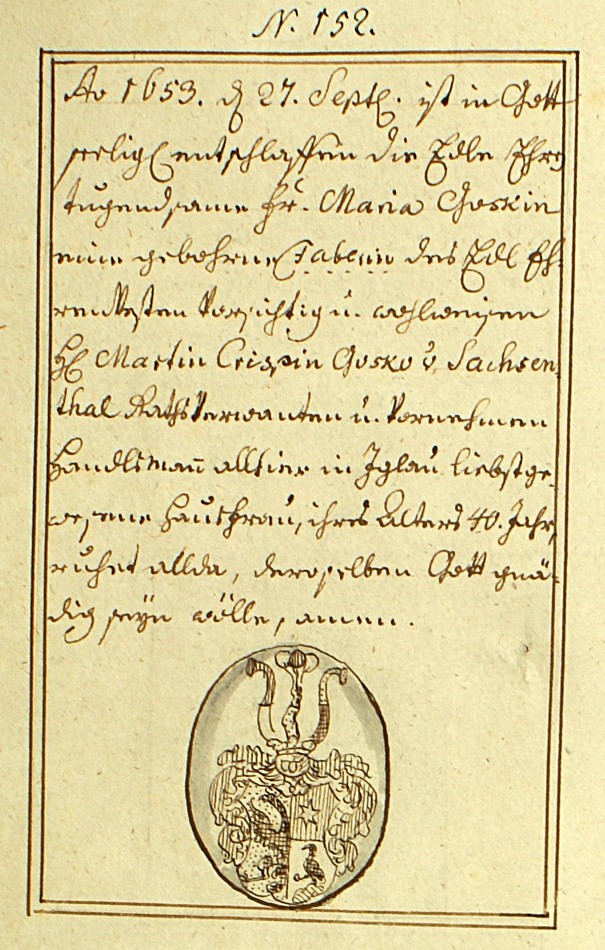 N. 152.
Ao 1653. d 27. Septb. ist in Gott
seelig entschlaffen die Edle Ehrn
tugendsame Fr. Maria Goskin
eine gebohrne Faberin des Edl Eh-
renVesten Vorsichtig u. wohlweisen
H. Martin Crispin Gosko v. Sachsen-
thal RathsVerwanten u. Vornehmen
Handlsmañ allhier in Iglau liebstge-
wesene Hausfrau, ihres Alters 40. Jahr,
ruhet allda, deroselben Gott gnä-
dig seyn wölle, amen.